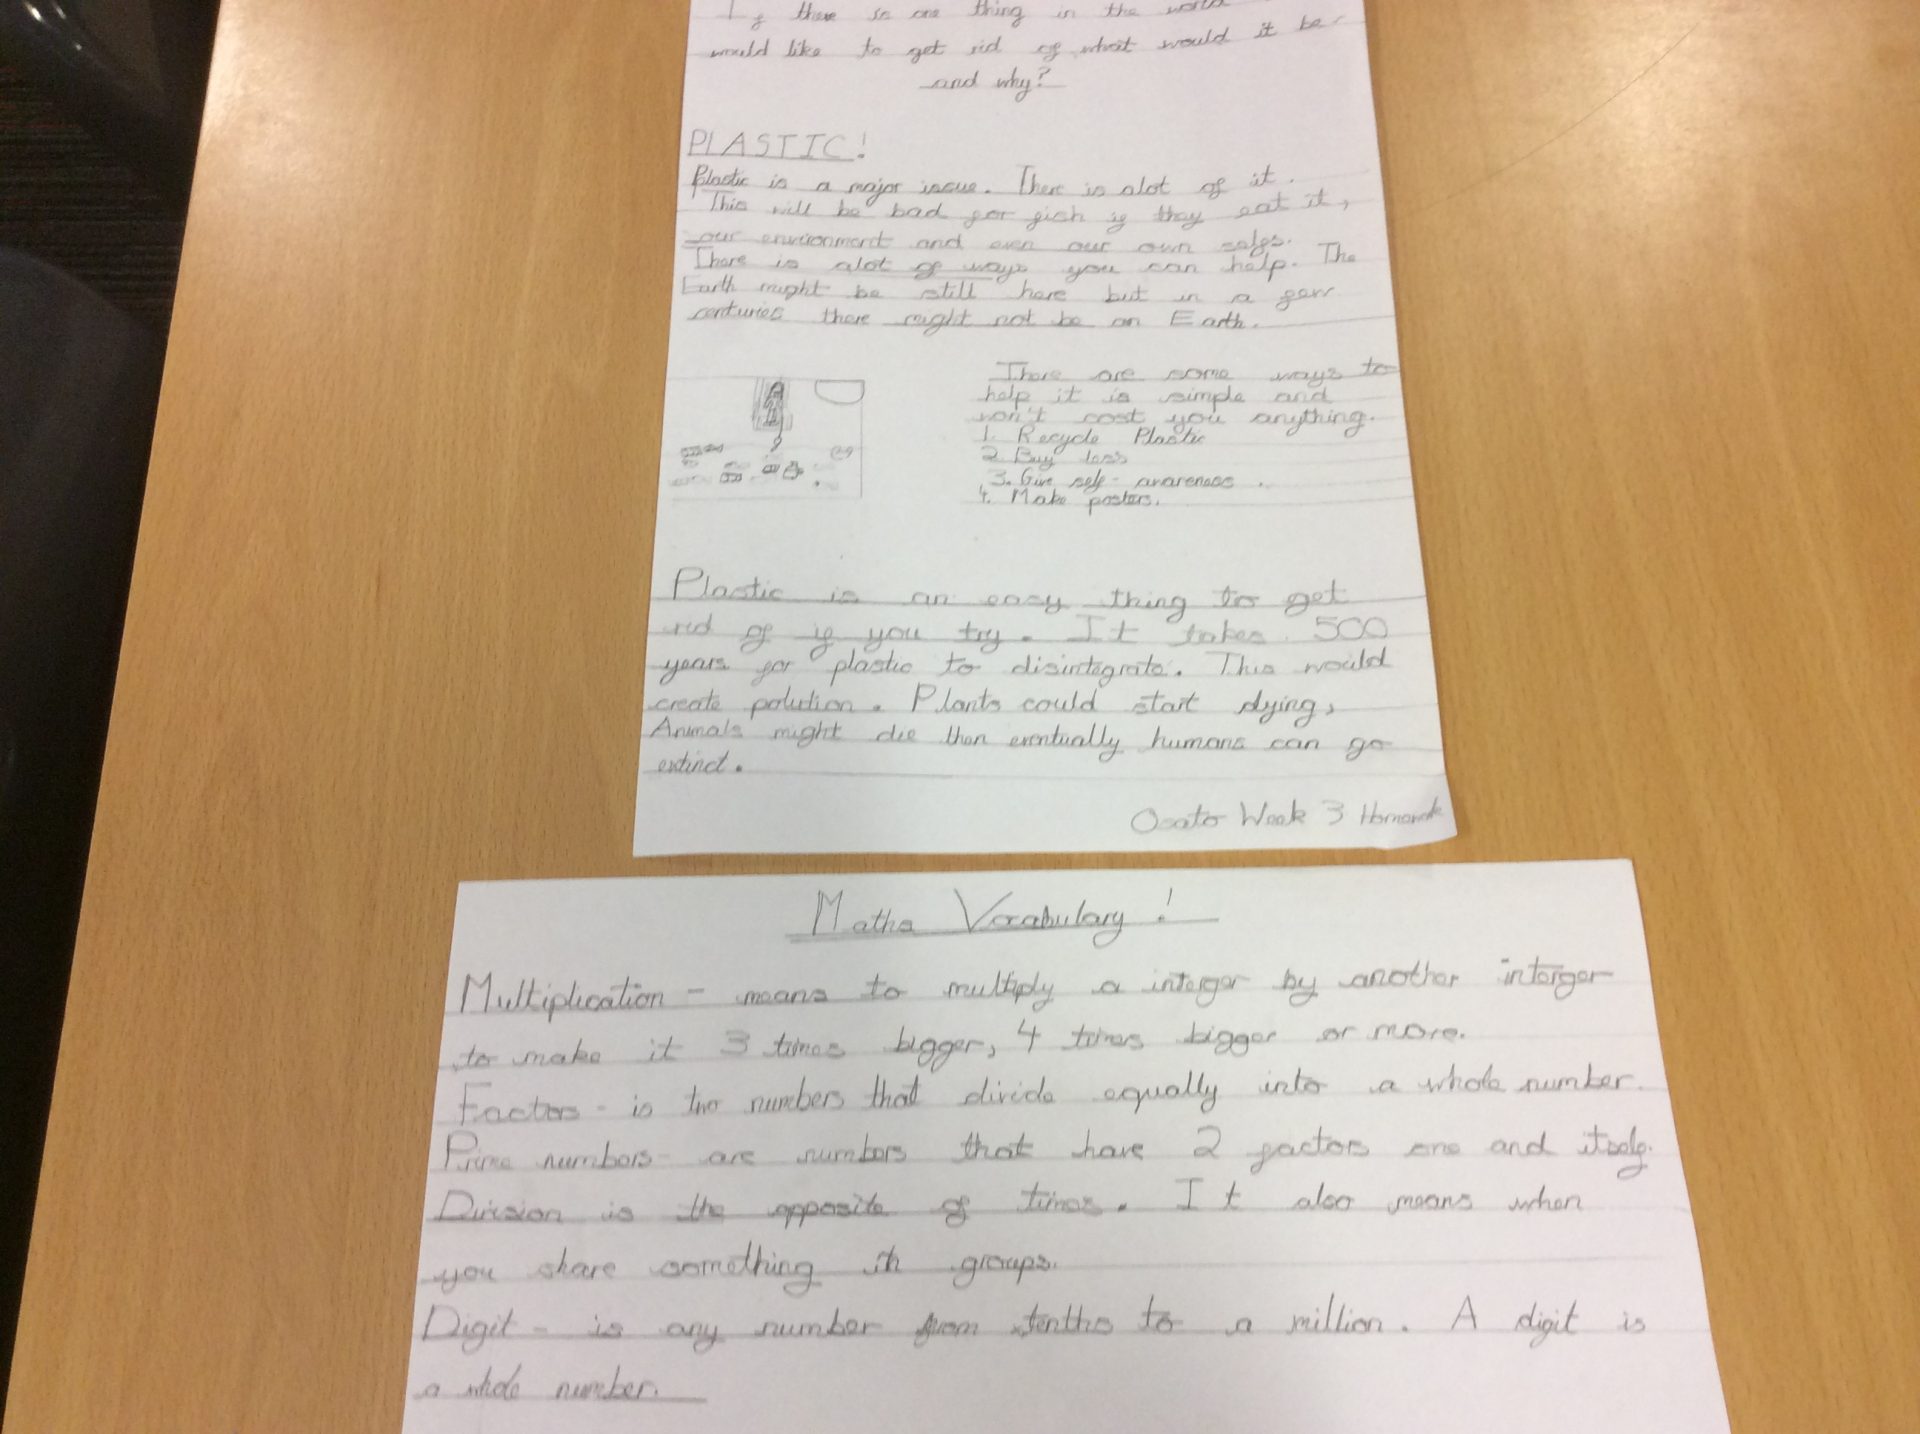 If there is one thing in the world
would like to get rid of what would it be
and why?
PLASTIC!
Plastic is a major issue. There is alot of it.
This will be bad for fish if they eat it,
our environment and even our own selfs.
There is alot of ways you can help. The
Earth might be still here but in a few
centuries there might not be an Earth.
There are some ways to
help it is simple and
won't cost you anything.
1. Recycle Plastic
2. Buy less
3. Give self-awareness.
4. Make posters.
Plastic is an easy thing to get
rid of if you try. It takes 500
years for plastic to disintegrate. This would
create polution. Plants could start dying,
Animals might die then eventually humans can go
extinct.
Osato Week 3 Homework
Maths Vocabulary!
Multiplication - means to multiply a interger by another interger
to make it 3 times bigger, 4 times bigger or more.
Factors - is two numbers that divide equally into a whole number.
Prime numbers - are numbers that have 2 factors one and itself.
Division is the opposite of times. It also means when
you share something in groups.
Digit - is any number from tenths to a million. A digit is
a whole number.